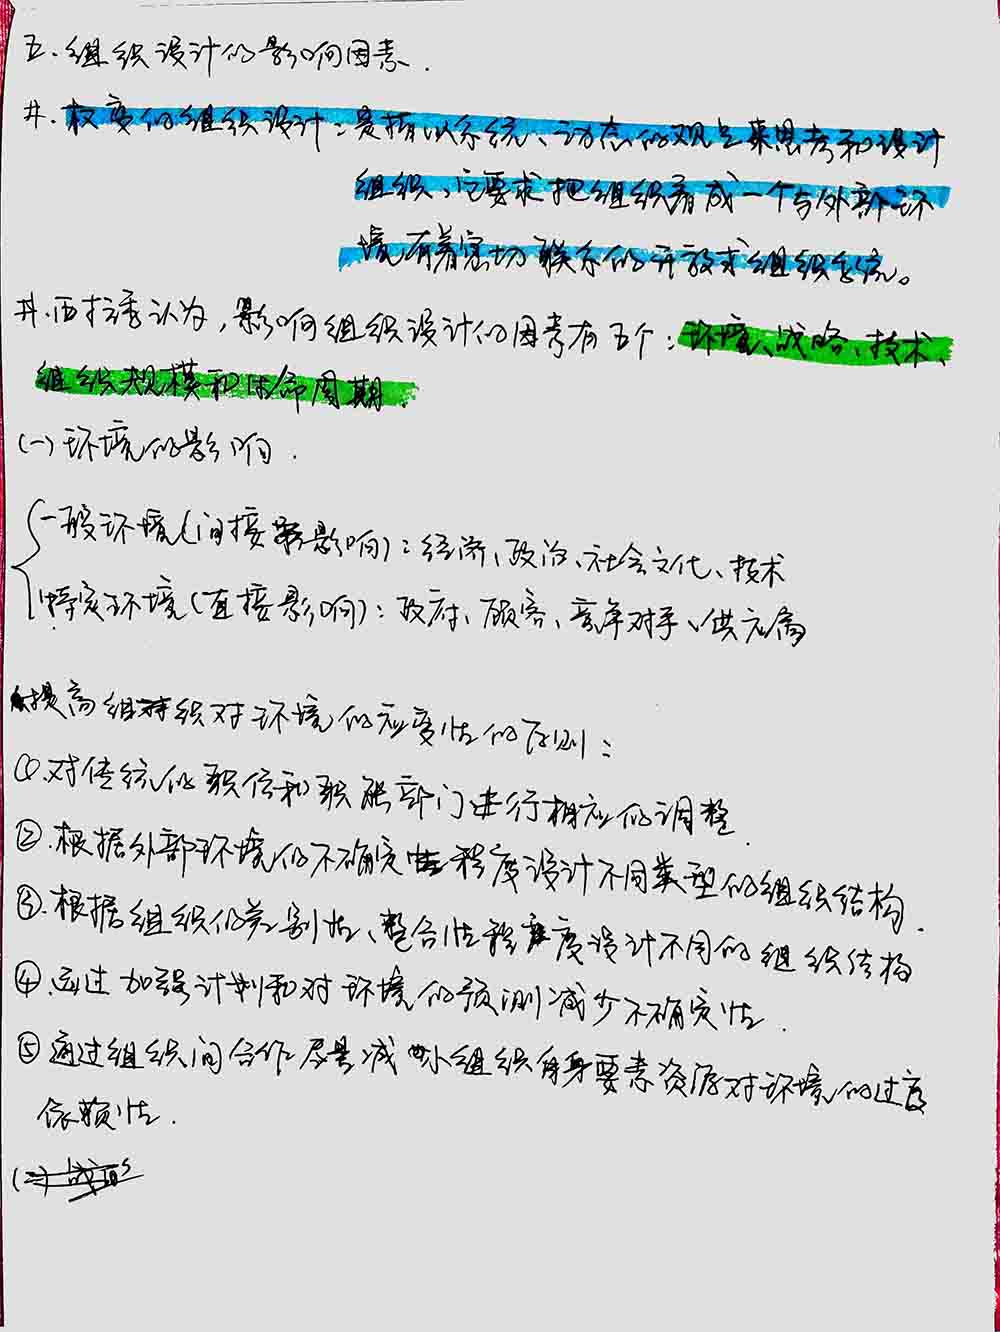 五.组织设计的影响因素.
井.权变的组织设计:是指以系统、动态的观点来思考和设计
组织,它要求把组织看成一个与外部环
境有着密切联系的开放式组织系统。
井.西拉季认为,影响组织设计的因素有五个:环境、战略、技术、
组织规模和生命周期.
(一)环境的影响.
一般环境(间接影响):经济、政治、社会文化、技术
特定环境(直接影响):政府、顾客、竞争对手、供应商
提高组织对环境的应变性的原则:
①.对传统的职位和职能部门进行相应的调整.
②.根据外部环境的不确定性程度设计不同类型的组织结构.
③.根据组织的差别性、整合性程度设计不同的组织结构
④.通过加强计划和对环境的预测减少不确定性.
⑤通过组织间合作尽量减小组织自身要素资源对环境的过度
依赖性.